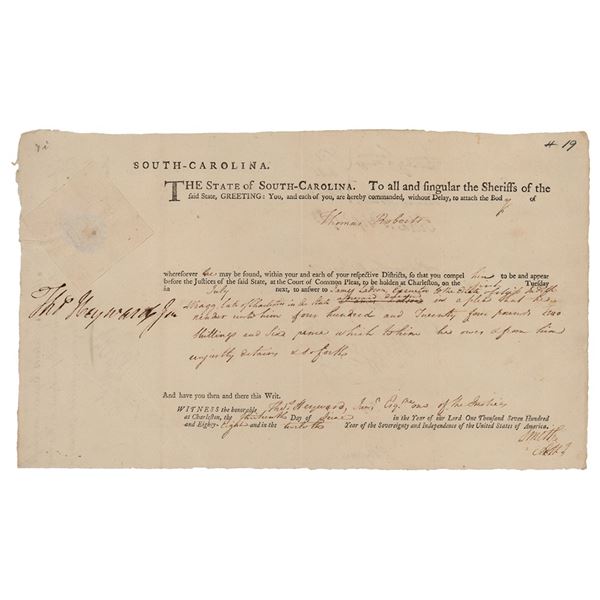 # 19
SOUTH-CAROLINA.
THE STATE OF SOUTH-CAROLINA. To all and singular the Sheriffs of the
said State, GREETING: You, and each of you, are hereby commanded, without Delay, to attach the Body of
Thomas Roberts
wheresoever he may be found, within your and each of your respective Districts, so that you compel him to be and appear
before the Justices of the said State, at the Court of Common Pleas, to be holden at Charleston, on the Tuesday
in July next, to answer to James Ladson, Executor to the Estate of
Wragg late of Charleston in the State in a plea that he
render unto him four hundred and Twenty four pounds two
Shillings and Six pence which to him he owes & from him
unjustly detains & so forth
Thos. Heyward Jun
And have you then and there this Writ.
WITNESS the honorable Thos. Heyward, Junr. Esqre one of the Justices
at Charleston, the thirteenth Day of June in the Year of our Lord One Thousand Seven Hundred
and Eighty-Eight and in the twelfth Year of the Sovereignty and Independence of the United States of America.
Smith